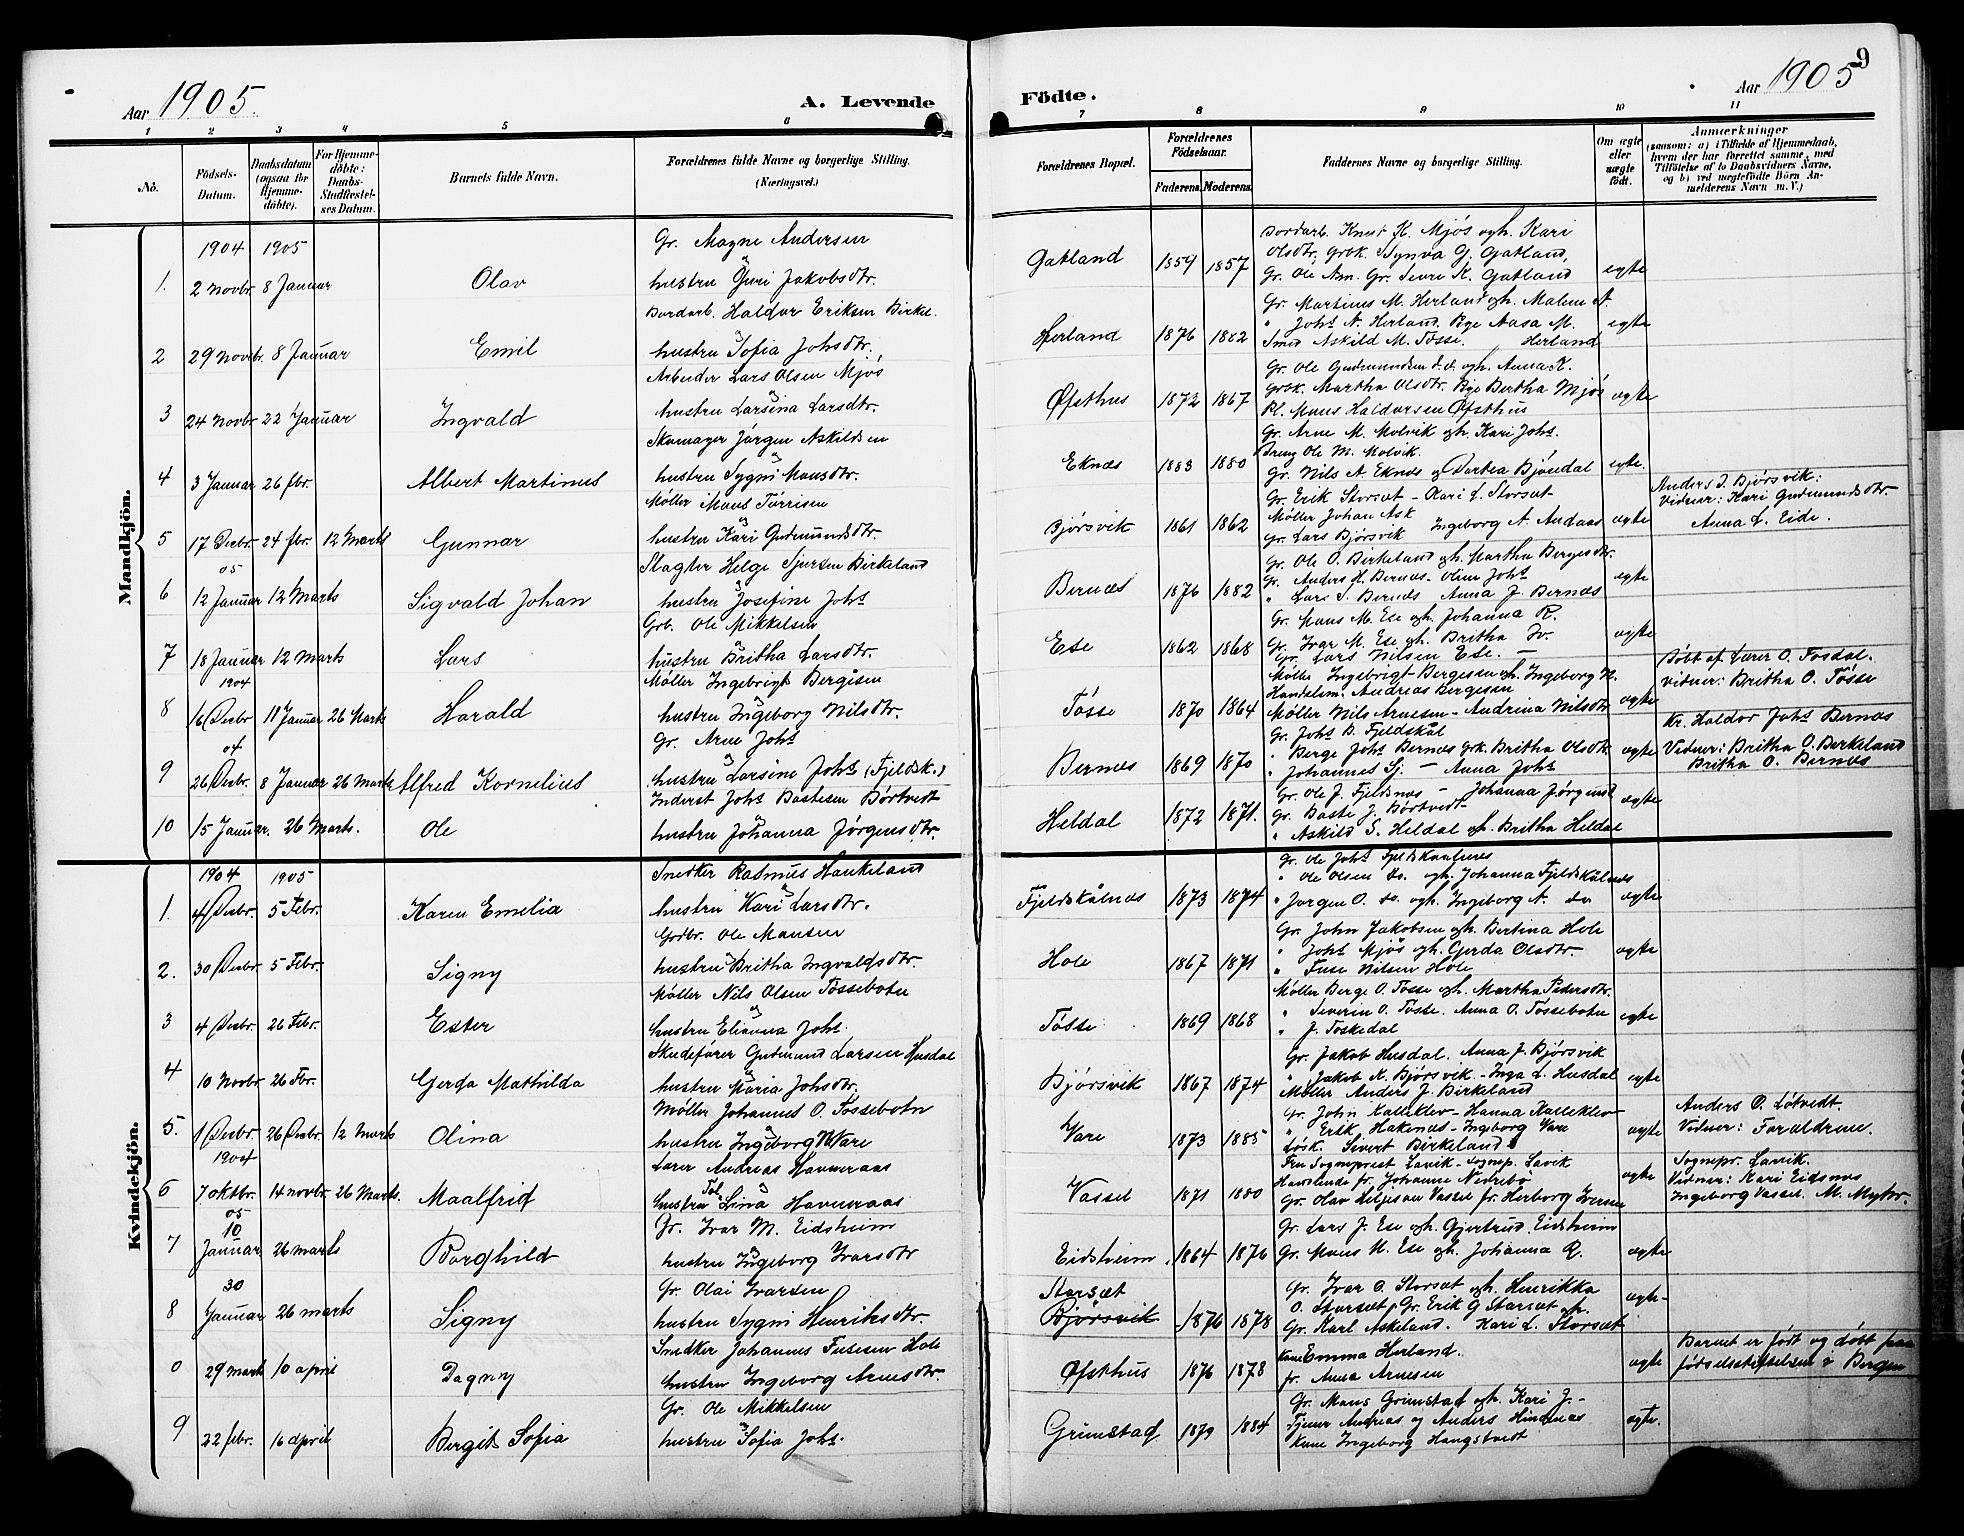 9
Aar 1905.
A. Levende
Födte.
Aar 1905
1 2 3 4 5 6 7 8 9 10 11
No.
Födsels-
Datum.
Daabsdatum
(ogsaa for
Hjemme-
döbte).
For Hjemme-
döbte:
Daabs-
Stadfæstel-
ses Datum.
Barnets fulde Navn.
Forældrenes fulde Navne og borgerlige Stilling.
(Næringsvei.)
Forældrenes Bopæl.
Forældrenes
Födselsaar.
Faderens. Moderens.
Faddernes Navne og borgerlige Stilling.
Om ægte
eller
uægte
födt.
Anmærkninger
(saasom: a) i Tilfælde af Hjemmedaab,
hvem der har forrettet samme, med
Tilföielse af to Daabsvidners Navne,
og b) ved uægtefödte Börn An-
melderens Navn m. V.)
Mandkjön.
1904 1905
Gr. Magne Andersen
1. 2 Novbr. 8 Januar Olav
hustru Guri Jakobsdtr.
Gatland 1859 1857
Jordarb. Knut K. Mjøs ogh. Kari
Olsdtr. Grbk. Synva G. Gatland,
Gr. Ole Am. Gr. Sevr K. Gatland
egte
Jordarb. Haldor Eriksen Birkel.
2 29 novbr. 8 Januar Emil
hustru Sofia Johsdtr.
Herland 1876 1882
Gr. Martinus M. Herland ogh. Malene A.
" Johs A. Herland. Pge Aasa M.
Smed Askild M. Tosse. Herland
egte
Arbeider Lars Olsen Mjøs
3 24 Novbr 22 Januar Ingvald
hustru Larsina Larsdtr.
Øfsthus 1872 1867
Gr. Ole Gudmundsen d.d. ogh. Anna K.
Grbk. Martha Olsdtr. Pge Bertha Mjøs
Pl. Mons Haldorsen Øfsthus
ægte
Skomager Jørgen Askildsen
4 3 Januar 26 fbr. Albert Martinus
hustru Sygni Monsdtr.
Eknæs 1883 1880
Gr. Arne M. Molvik ogh. Kari Johs.
Dreng Ole M. Molvik.
Gr. Nils A. Eknæs og Dortea Bjøndal
egte.
Møller Mons Torrisen
5 17 Decbr. 24 fbr. 12 Marts Gunnar
hustru Kari Gudmundsdtr.
Bjørsvik 1861 1862
Gr. Erik Storsæt - Kari L. Storsæt
Møller Johan Ask
Gr. Lars Bjørsvik Ingeborg A. Andaas
ægte
Anders J. Bjørsvik:
Vidner: Kari Gudmundsdtr.
Anna L. Eide.
05
Slagter Helge Sjursen Birkeland
6 12 Januar 12 Marts Sigvald Johan
hustru Josefine Johs
Bernæs 1876 1882
Gr. Ole O. Birkeland ogh. Martha Bergesdtr.
Gr. Anders H. Bernæs - Oline Johs
" Lars S. Bernæs Anna J. Bernæs
ægte
Grb. Ole Mikkelsen
7 18 Januar 12 Marts Lars
hustru Britha Larsdtr.
Ese 1862 1868
Gr. Mons M. Ese ogh. Johanna R.
Gr. Ivar M. Ese gh. Britha Iv.
Gr. Lars Nilsen Ese. -
ægte
1904
Møller Ingebrigt Bergesen
8 16 Decbr 11 Januar 26 Marts Harald
hustru Ingeborg Nilsdtr.
Tösse 1870 1864
Mölle Ingebrigt Bergesen ogh. Ingeborg N.
Handelsm. Andreas Bergesen
Møller Nils Arnesen - Andrina Nilsdtr
ægte
Döbt af Lærer O. Fosdal.
Vidner: Britha O. Tösse
04
Gr. Arne Johs
9 26 Decbr. 8 Januar 26 Marts Alfred Kornelius
hustru Larsine Johs (Fjeldsk.)
Bernæs 1869 1870
Gr. Johs B. Fjeldskål
" Berge Johs Bernæs Grk. Britha Olsdtr
" Johannes Sj. - Anna Johs
ægte
Kr. Haldor Johs Bernæs
Vidner: Britha O. Birkeland
Britha O. Bernæs
Inderst Johs Bastesen Børtvedt
10 15 Januar. 26 Marts. Ole
hustru Johanna Jørgensdtr.
Heldal 1872 1871.
Gr. Ole J. Fjeldsnæs - Johanna Jørgensd
Gr. Baste J. Børtvedt
" Askild S. Heldal ogh. Britha Heldal
ægte
Kvindekjön.
1904 1905
Snedker Rasmus Haukeland
1. 4 Decbr. 5 Febr. Karen Emelia
hustru Kari Larsdtr.
Fjeldskålnæs 1873 1874
Gr. Ole Johs Fjeldskaalnes
" Ole Olsen do. ogh. Johanna Fjeldskålnæs
" Jørgen O. do. ogh. Ingeborg A. do
ægte
Grdbr. Ole Monsen
2. 30 Decbr. 5 Febr. Signy
hustru Britha Ingvaldsdtr.
Hole 1867 1871
Gr. John Jakobsen ogh. Bertina Hole
" Johs Mjøs ogh. Gerda Olsdtr.
" Fuse Nilsen Hole
ægte
Møller Nils Olsen Tössebotn
3 4 Decbr. 26 Febr. Ester
hustru Elianna Johs.
Tösse 1869 1868
Møller Berge O. Tosse ogh. Martha Pedersdtr.
" Severin O. Tösse. Anna O. Tössebotn
" J. Toskedal
egte
Skudefører Gudmund Larsen Husdal
4 10 Novbr 26 Fbr. Gerda Mathilda
hustru Maria Johsdtr.
Bjørsvik 1867 1874
Gr. Jakob Husdal. Anna J. Bjørsvik
" Jakob K. Bjørsvik. - Inga L. Husdal
Møller Anders J. Birkeland
egte
Møller Johannes O. Tössebotn
5. 1 Decbr. 26 Decbr. 12 Marts Olina
hustru Ingeborg N. Vare
Vare 1873 1885
Gr. John Kalleklev - Hanna Kalleklev
" Erik Hakenæs - Ingeborg Vare
Løsk. Sivert Birkeland
ægte
Anders O. Løtvedt.
Vidner: Forældrene.
1904
Lærer Andreas Havneraas
6 7 oktbr. 14 novbr. 26 Marts. Maalfrid
hustru Lina Havneraas
Vassel 1871 1880
Fru Sogneprest Lavik - Sognep. Lavik
Handlende fr. Johanne Nevrebø
Gr. Olav Helgesen Vassel fr. Herborg Iversen
ægte
Sognepr. Lavik.
Vidner: Kari Eidsnæs
Ingeborg Vassel. M. Myhr.
05
10
Gr. Ivar M. Eidsheim
7 Januar 26 marts Borghild
hustru Ingeborg Ivarsdtr
Eidsheim 1864 1876
Gr. Lars J. Ese ogh. Gjertrud. Eidsheim
Gr. Mons M. Ese ogh. Johanna R.
ægte
30
Gr. Olai Ivarsen
8 Januar 26 marts Signy
hustru Sygni Henriksdtr.
Storsæt
Bjørsvik 1876 1878
Gr. Ivar O. Storsæt ogh. Henrikka
O. Storsæt, Gr. Erik G Storsæt gh.
Gr. Karl Askeland. Kari L. Storsæt
ægte
Snedker Johannes Fusesen Hole
0 29 mark 10 april Dagny
hustru Ingeborg Arnesdtr.
Øfsthus 1876 1878
Kone Emma Herland.
fr. Anna Arnesen
ægte
Barnet er født og döbt paa
fødselsstiftelsen i Bergen
Gr. Ole Mikkelsen
9 22 febr. 16 april Bergit Sofia
hustru Sofia Johs.
Grimstad 1879 1884
Gr. Mons Grimstad ogh. Kari J. -
Tjener Andreas og Anders Hindnæs
Kone Ingeborg Haugstvedt
ægte.